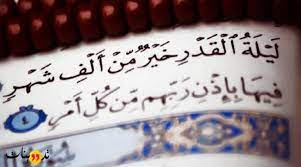 لَيْلَةُ الْقَدْرِ خَيْرٌ مِّنْ أَلْفِ شَهْرٍ
فِيهَا بِإِذْنِ رَبِّهِم مِّن كُلِّ أَمْرٍ ٤